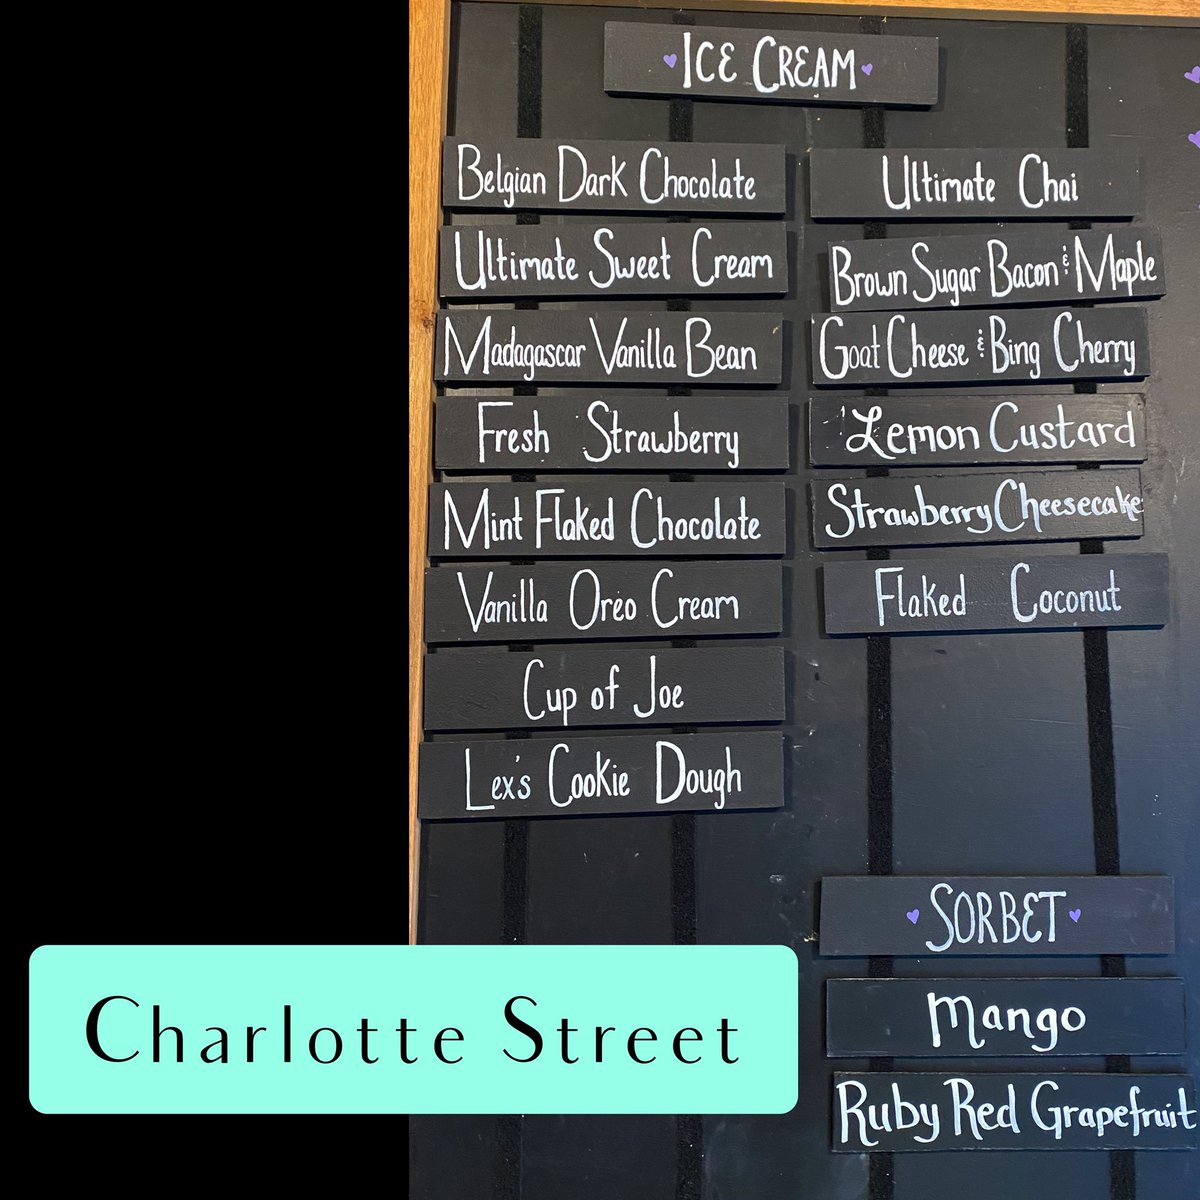 ICE CREAM
Belgian Dark Chocolate
Ultimate Sweet Cream
Madagascar Vanilla Bean
Fresh Strawberry
Mint Flaked Chocolate
Vanilla Oreo Cream
Cup of Joe
Lex's Cookie Dough
Ultimate Chai
Brown Sugar Bacon & Maple
Goat Cheese & Bing Cherry
Lemon Custard
Strawberry Cheesecake
Flaked Coconut
SORBET
Mango
Ruby Red Grapefruit
Charlotte Street